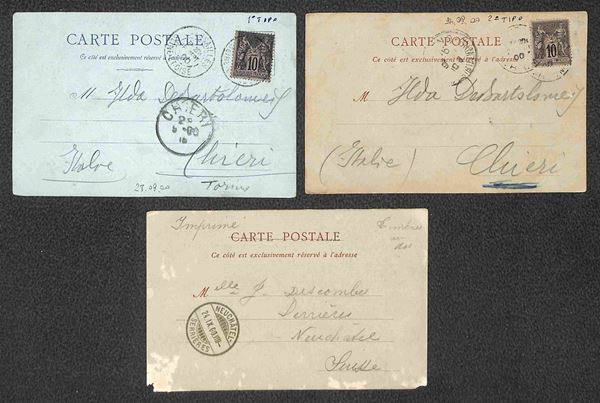 1º TIPO
CARTE POSTALE
Ce côté est exclusivement réservé à l'adresse
10
M Ilda DeBartolomeis
CHIERI
Italie
Chieri
28.09.00
Torino
09.00 2º TIPO
CARTE POSTALE
Ce côté est exclusivement réservé à l'adresse
10
M Ilda DeBartolomeis
(Italie)
Chieri
Imprimé
Timbre
au
dos
CARTE POSTALE
Ce côté est exclusivement réservé à l'adresse
Melle J. Descombes
Serrières
Neuchâtel
Suisse
NEUCHÂTEL
24.IX.00
SERRIÈRES